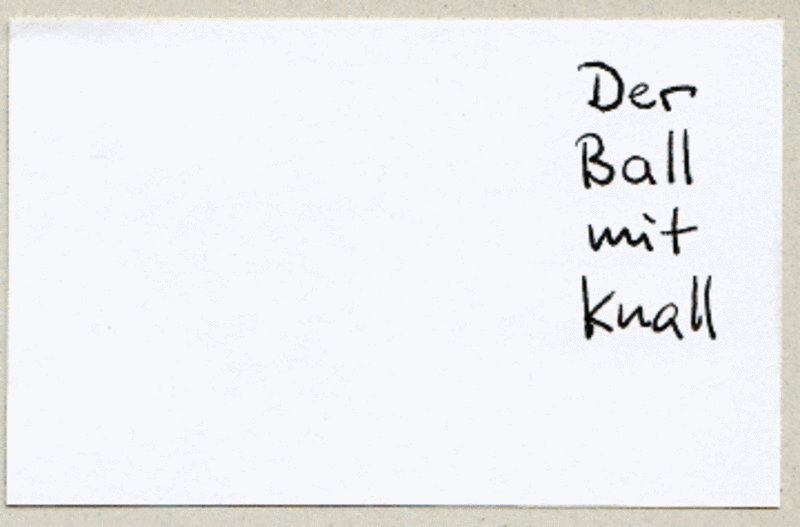 Der
Ball
mit
Knall